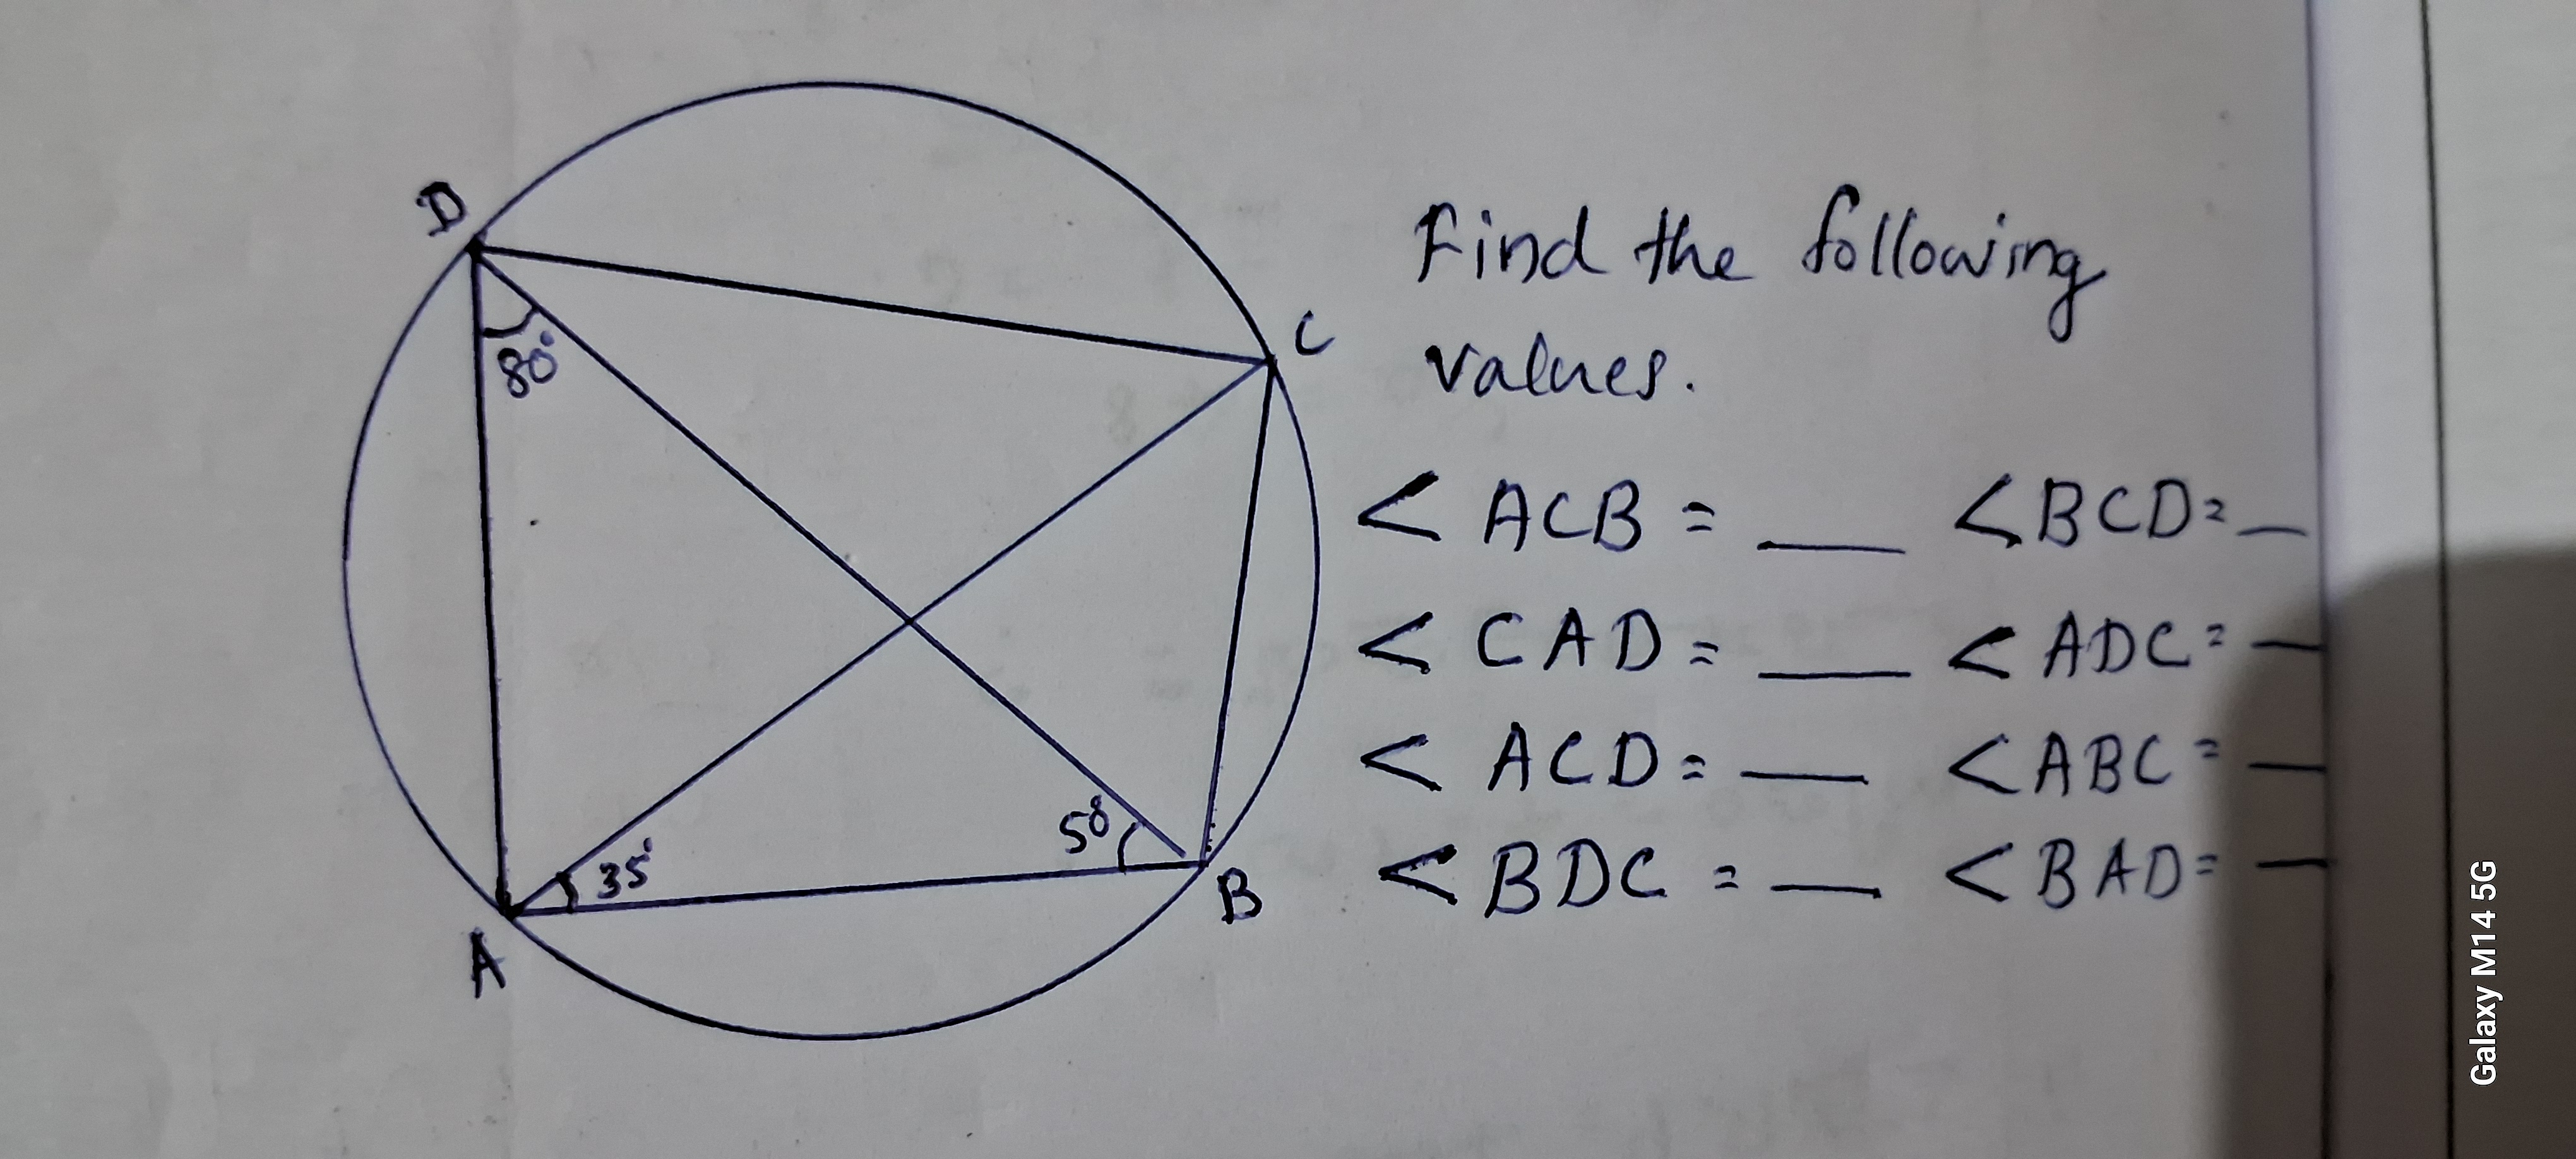 D
C
80°
Find the following
values.
< ACB = ___ < BCD = __
< CAD = ___ < ADC = __
< ACD = ___ < ABC = __
< BDC = ___ < BAD = __
35°
50°
A
B
Galaxy M14 5G